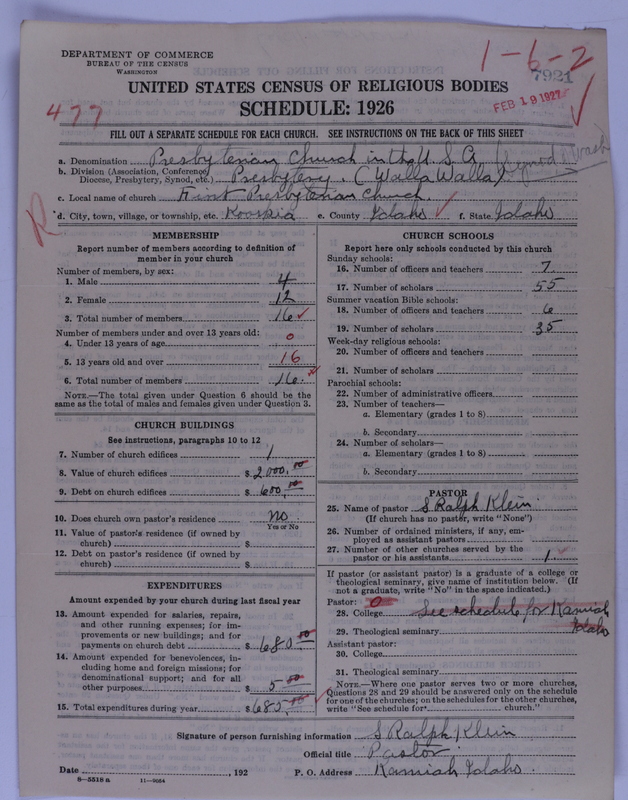 DEPARTMENT OF COMMERCE
BUREAU OF THE CENSUS
WASHINGTON
1-6-2
7921
UNITED STATES CENSUS OF RELIGIOUS BODIES
SCHEDULE: 1926
FEB 19 1927
477
FILL OUT A SEPARATE SCHEDULE FOR EACH CHURCH. SEE INSTRUCTIONS ON THE BACK OF THIS SHEET
a. Denomination Presbyterian Church in the U.S.A.
b. Division (Association, Conference, Diocese, Presbytery, Synod, etc.) Presbytery. (Walla Walla) (Synod Wash
c. Local name of church First Presbyterian Church.
d. City, town, village, or township, etc. Kooskia e. County Idaho f. State Idaho
R
MEMBERSHIP
Report number of members according to definition of
member in your church
Number of members, by sex:
1. Male 4
2. Female 12
3. Total number of members 16
Number of members under and over 13 years old:
4. Under 13 years of age 0
5. 13 years old and over 16
6. Total number of members 16.
NOTE.—The total given under Question 6 should be
same as the total of males and females given under Question 3.
CHURCH BUILDINGS
See instructions, paragraphs 10 to 12
7. Number of church edifices 1
8. Value of church edifices $ 2000.00
9. Debt on church edifices $ 600.00
10. Does church own pastor's residence No
Yes or No
11. Value of pastor's residence (if owned by
church) $
12. Debt on pastor's residence (if owned by
church) $
EXPENDITURES
Amount expended by your church during last fiscal year
13. Amount expended for salaries, repairs,
and other running expenses; for im-
provements or new buildings; and for
payments on church debt $ 680.00
14. Amount expended for benevolences, in-
cluding home and foreign missions; for
denominational support; and for all
other purposes $ 5.00
15. Total expenditures during year $ 685.00
CHURCH SCHOOLS
Report here only schools conducted by this church
Sunday schools:
16. Number of officers and teachers 7
17. Number of scholars 55
Summer vacation Bible schools:
18. Number of officers and teachers 6
19. Number of scholars 35
Week-day religious schools:
20. Number of officers and teachers
21. Number of scholars
Parochial schools:
22. Number of administrative officers
23. Number of teachers—
a. Elementary (grades 1 to 8)
b. Secondary
24. Number of scholars—
a. Elementary (grades 1 to 8)
b. Secondary
PASTOR
25. Name of pastor S Ralph Klein
(If church has no pastor, write "None")
26. Number of ordained ministers, if any, em-
ployed as assistant pastors
27. Number of other churches served by the
pastor or his assistants 1.
If pastor (or assistant pastor) is a graduate of a college or
theological seminary, give name of institution below. (If
not a graduate, write "No" in the space indicated.)
Pastor: 0
28. College See schedule for Kamiah
29. Theological seminary Idaho
Assistant pastor:
30. College
31. Theological seminary
NOTE.—Where one pastor serves two or more churches,
Questions 28 and 29 should be answered only on the schedule
for one of the churches; on the schedules for the other churches,
write "See schedule for church."
Signature of person furnishing information S Ralph Klein
Official title Pastor
Date , 192 P. O. Address Kamiah Idaho.
8—5518 a 11—9054